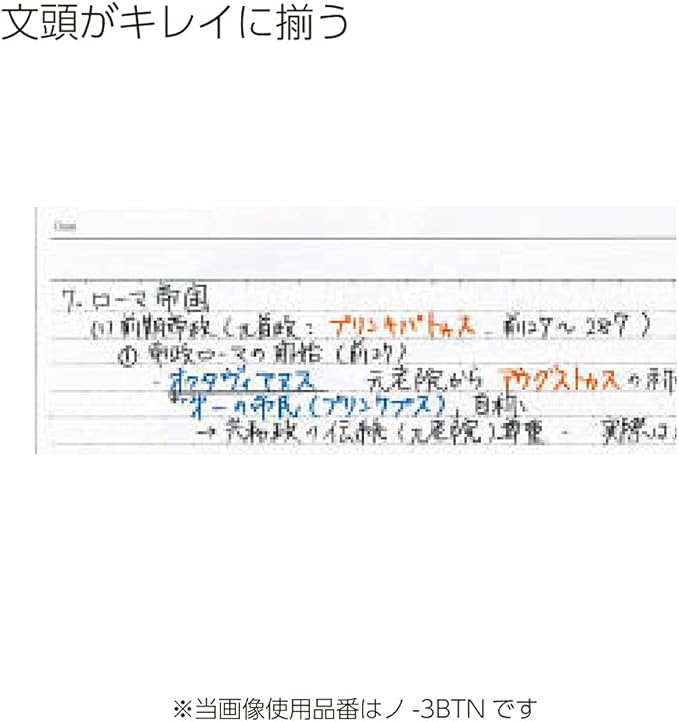 文頭がキレイに揃う
Date
7. ローマ帝国
(1) 前期帝政 (元首政: プリンキパトゥス 前27〜287)
① 帝政ローマの開始 (前27)
・オクタヴィアヌス 元老院から アウグストゥス の称
第一の市民 (プリンケプス), 自称
→ 共和政の伝統 (元老院) 尊重 - 実際は
※当画像使用品番はノ-3BTNです